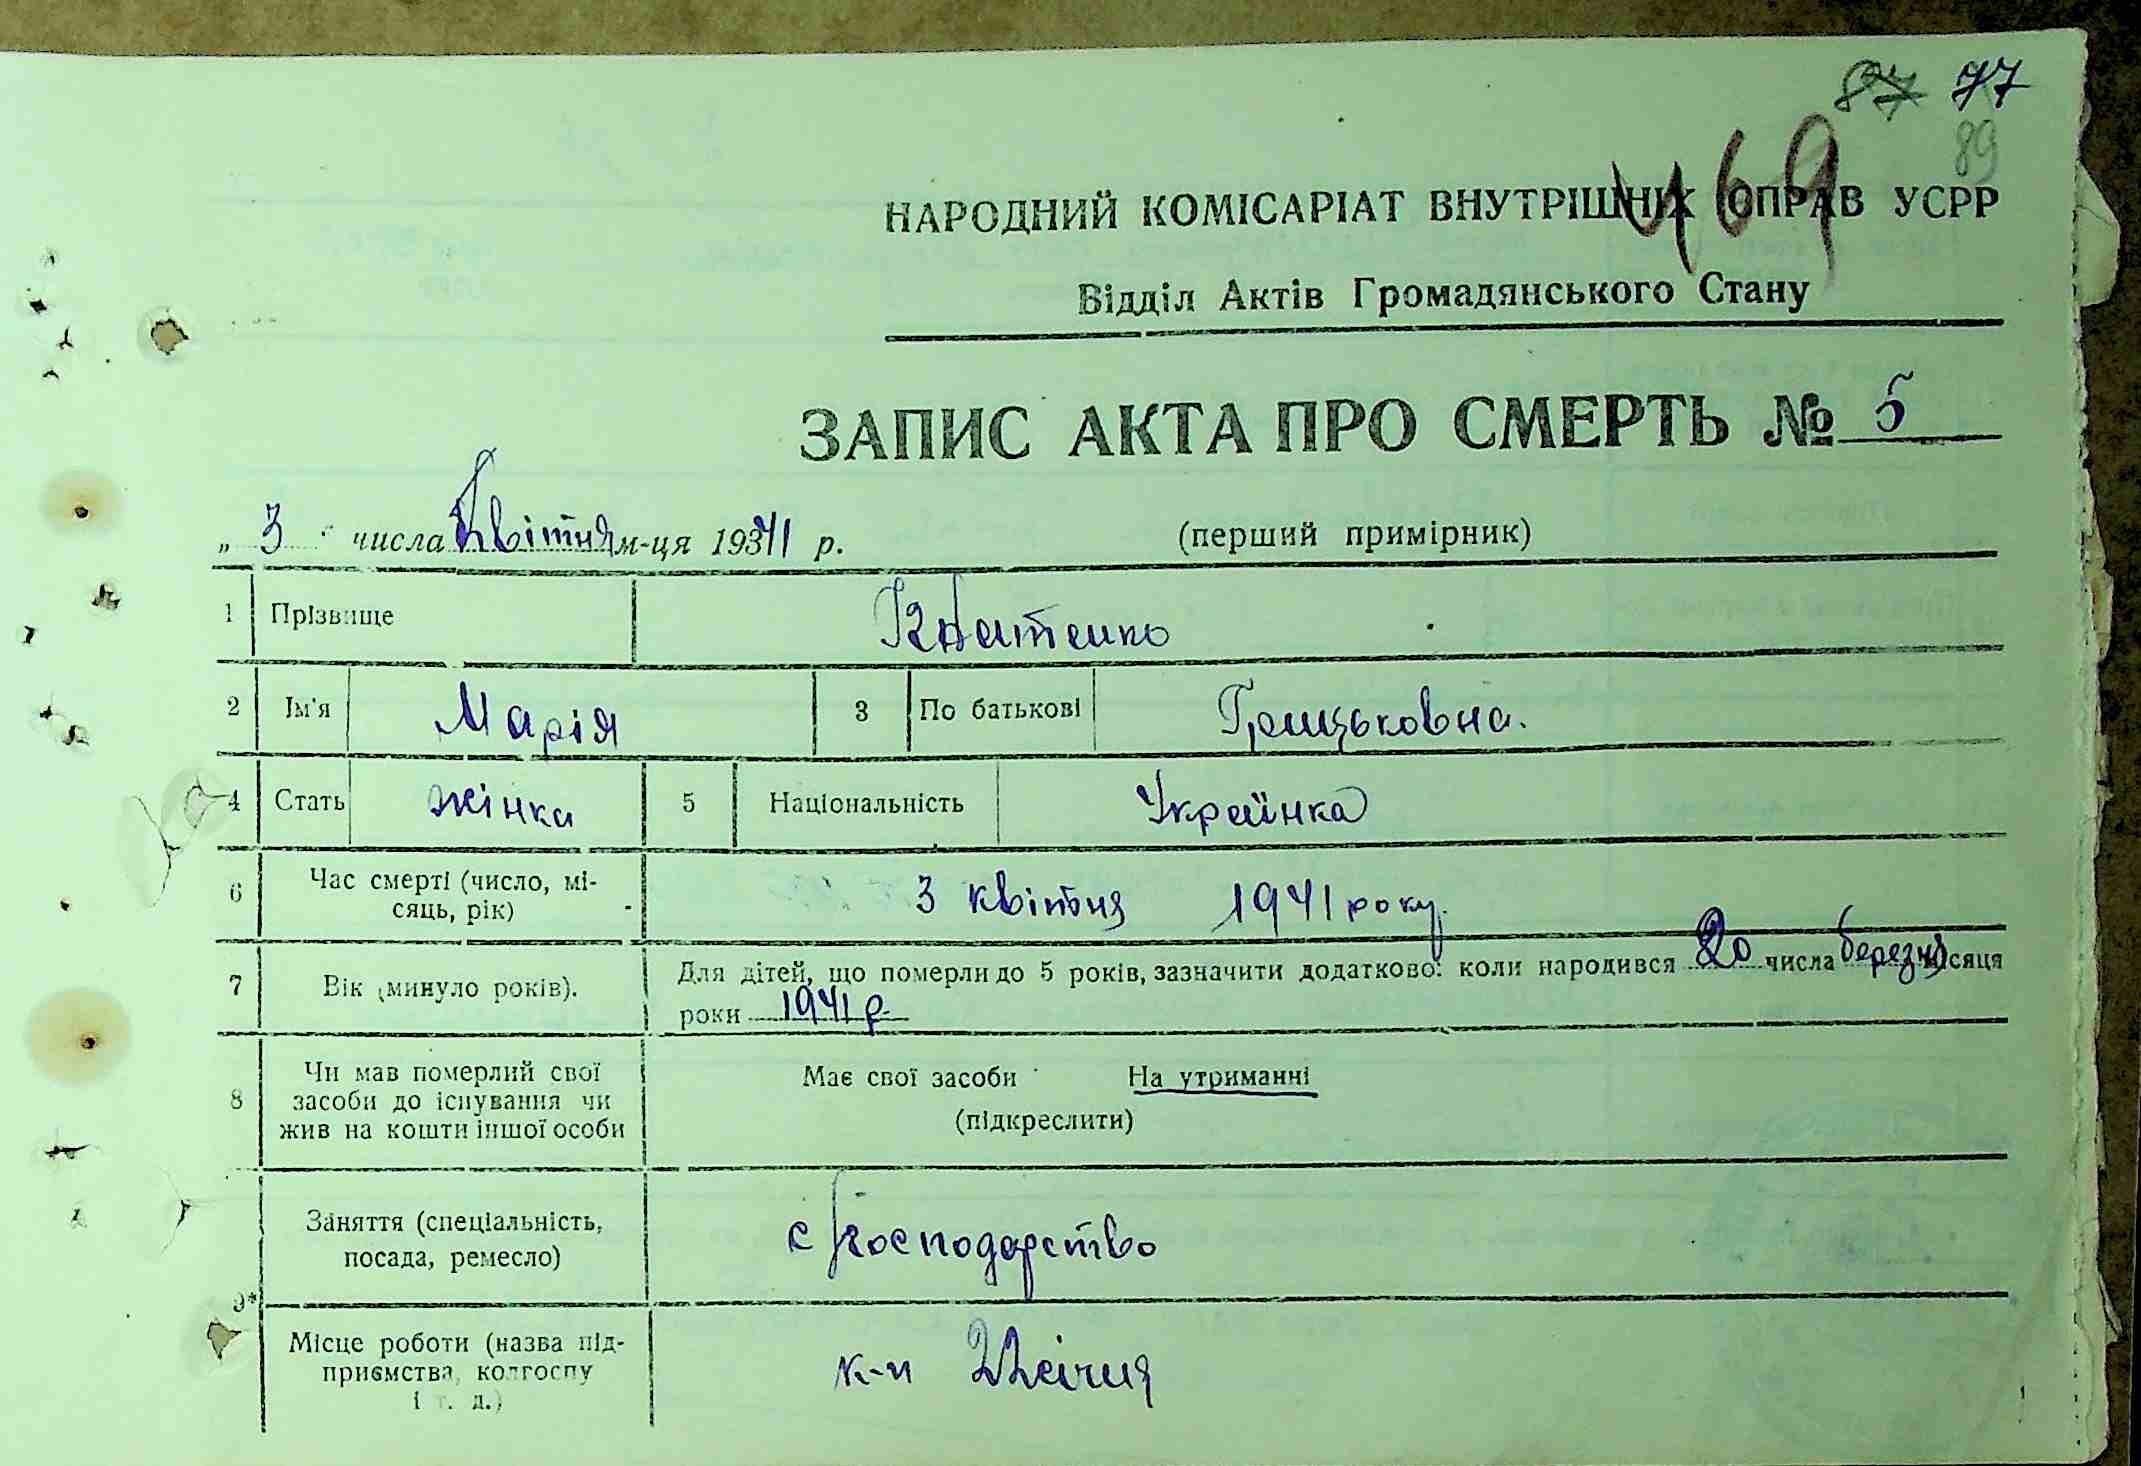 87 77
89
469
НАРОДНИЙ КОМІСАРІАТ ВНУТРІШНІХ СПРАВ УСРР
Відділ Актів Громадянського Стану
ЗАПИС АКТА ПРО СМЕРТЬ № 5
„ 3 " числа Квітня м-ця 1941 р. (перший примірник)
1 Прізвище
2 Ім'я Марія 3 По батькові Грицьковна.
4 Стать жінка 5 Національність Українка
6 Час смерті (число, мі-
сяць, рік) 3 квітня 1941 року.
7 Вік (минуло років). Для дітей, що померли до 5 років, зазначити додатково: коли народився 20 числа березня місяця
роки 1941 р.
8 Чи мав померлий свої
засоби до існування чи
жив на кошти іншої особи
Має свої засоби На утриманні
(підкреслити)
9* Заняття (спеціальність,
посада, ремесло) с господарство
Місце роботи (назва під-
приємства, колгоспу
і т. д.) к-п